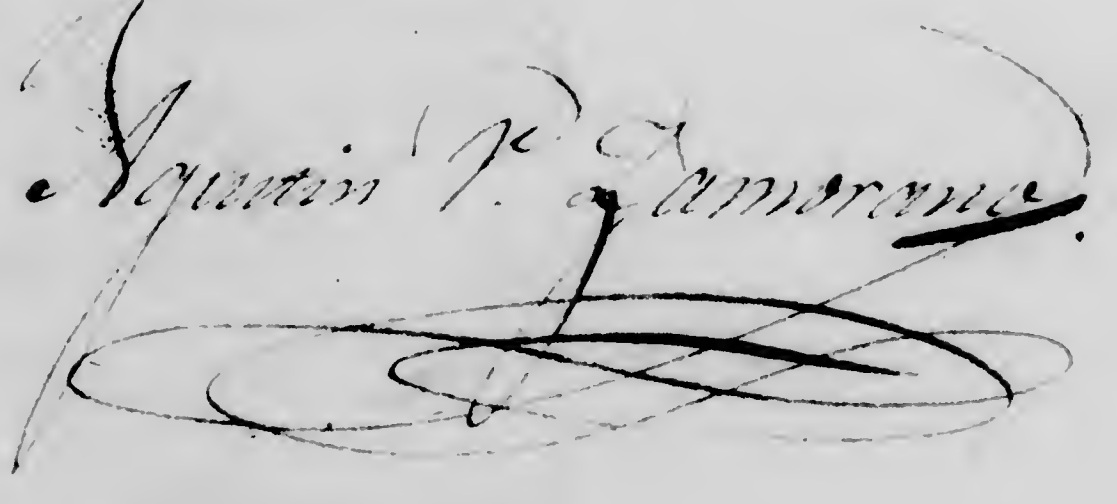 Agustin V. Zamorano.